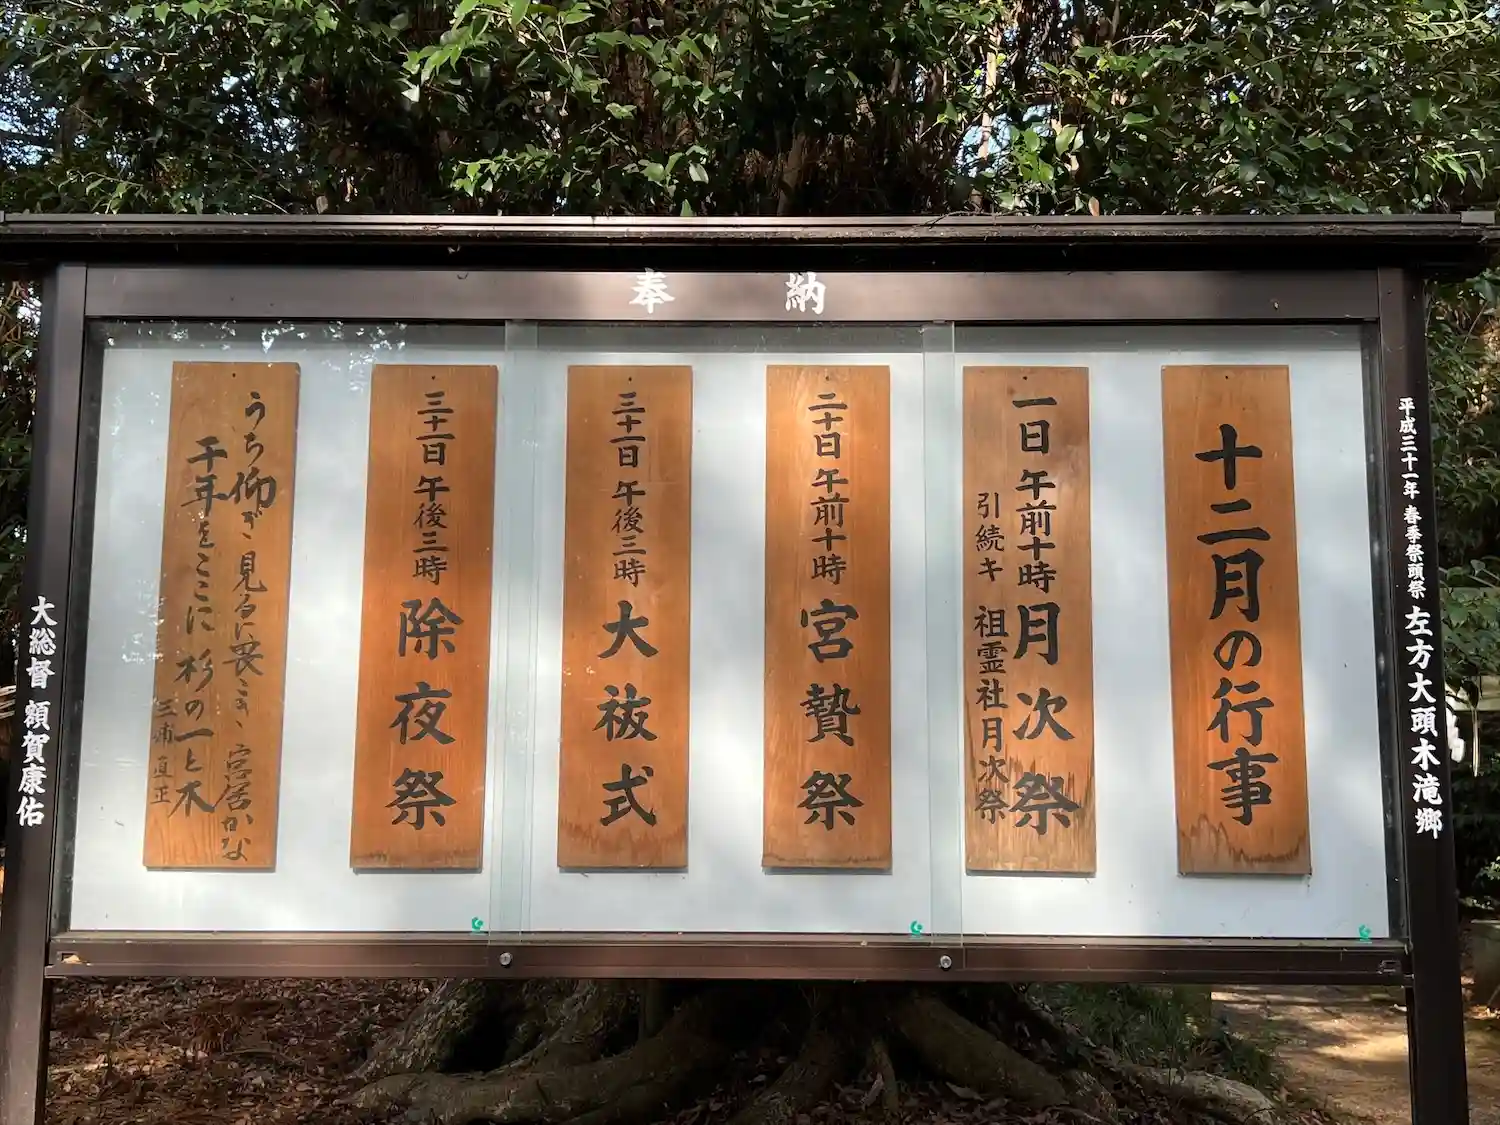 奉納
平成三十一年 春季祭頭祭 左方大頭木滝郷
十二月の行事
一日 午前十時 月次祭
引続キ 祖霊社月次祭
二十日 午前十時 宮贄祭
三十一日 午後三時 大祓式
三十一日 午後三時 除夜祭
うち仰ぎ見るに畏こき宮居かな
千年をここに杉の一と木
三浦直正
大総督 額賀康佑